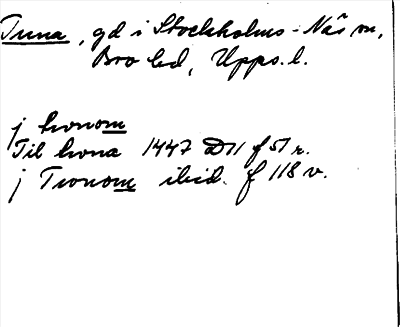 Tuna, gd i Stockholms-Näs sn,
Bro hd, Upps. l.
j honom
Til hona 1447 D11 f 51 r.
j Tronom ibid. f 118 v.